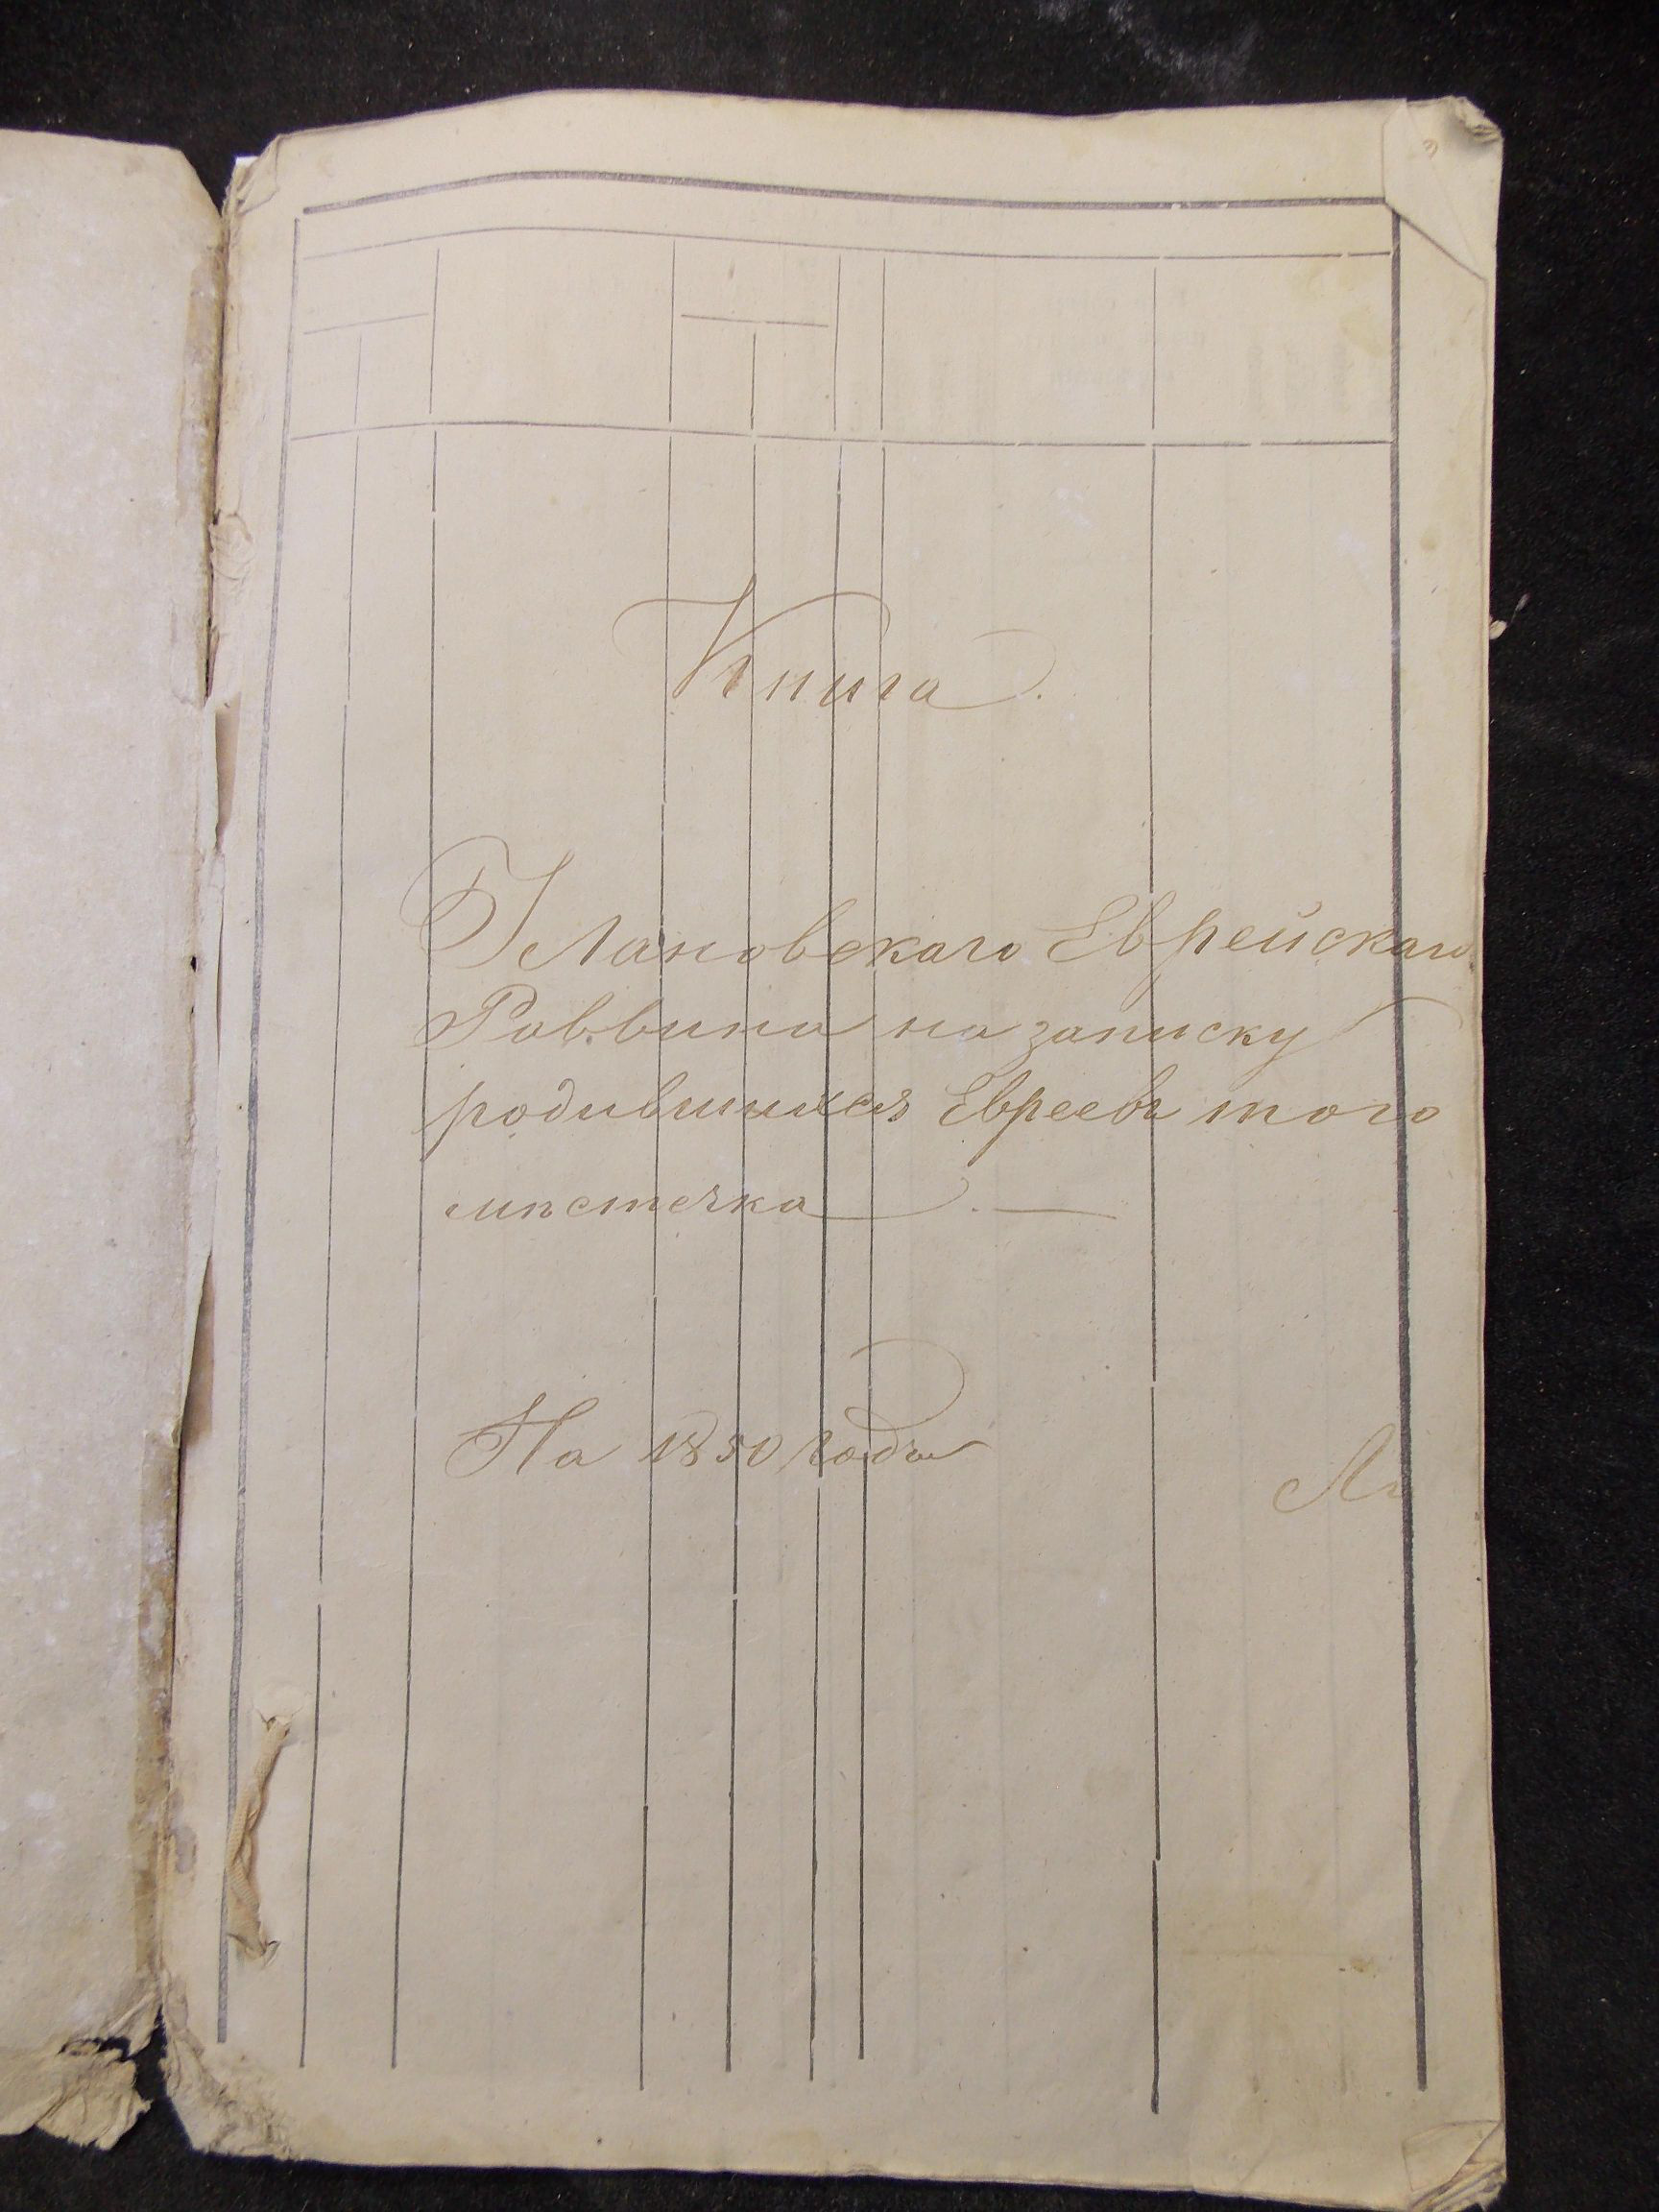 Книга.
Улановскаго Еврейскаго
Раввина на записку
родившихся Евреевъ того
мѣстечка. —
На 1850 годъ